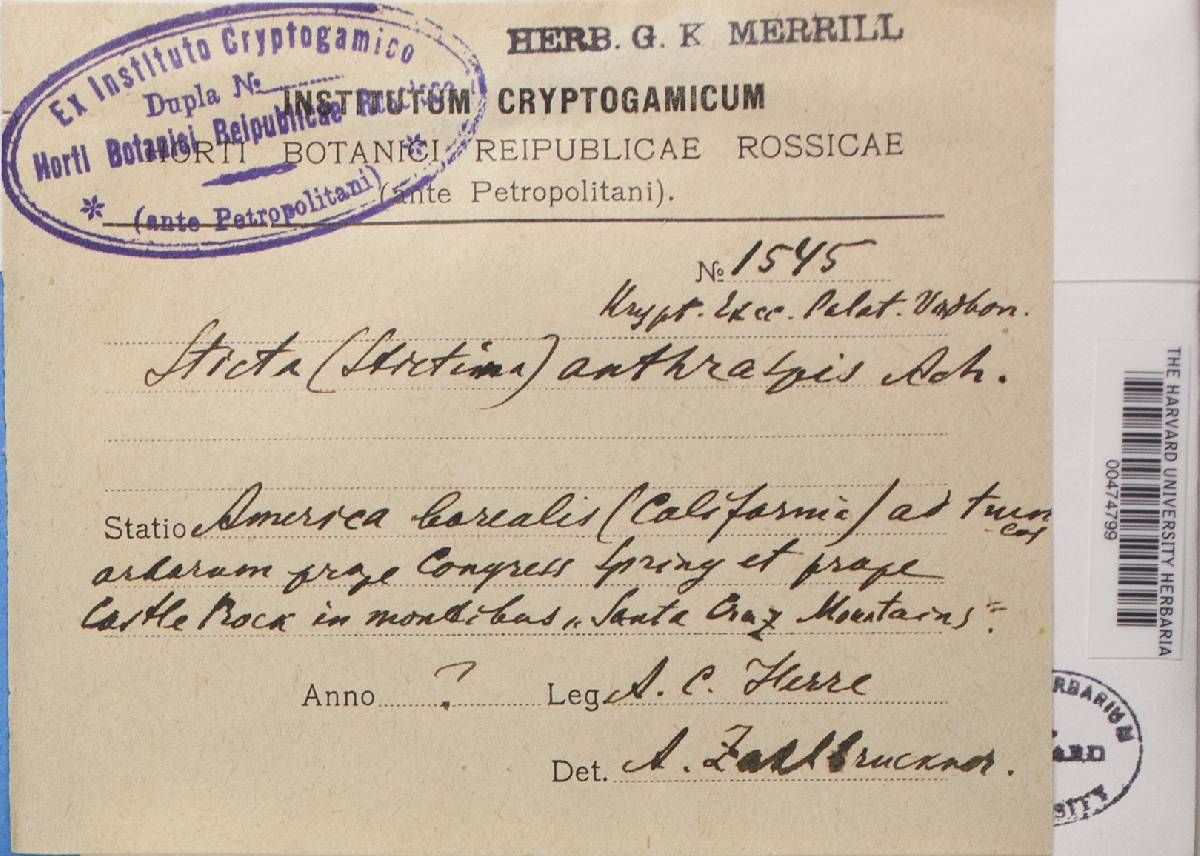 HERB. G. K MERRILL
Ex Instituto Cryptogamico
Dupla №
Horti Botanici Reipublicae
(ante Petropolitani)
INSTITUTUM CRYPTOGAMICUM
HORTI BOTANICI REIPUBLICAE ROSSICAE
(ante Petropolitani).
№ 1545
Krypt. Excc. Palat. Vindbon.
Sticta (Stictina) anthraspis Ach.
Statio America borealis (California) ad trun
cos
arborum prope Congress Spring et prope
Castle Rock in montibus „Santa Cruz Mountains".
Anno ? Leg. A. C. Herre
Det. A. Zahlbruckner.
THE HARVARD UNIVERSITY HERBARIA
00474799
RBARIUM
ARD
SITY